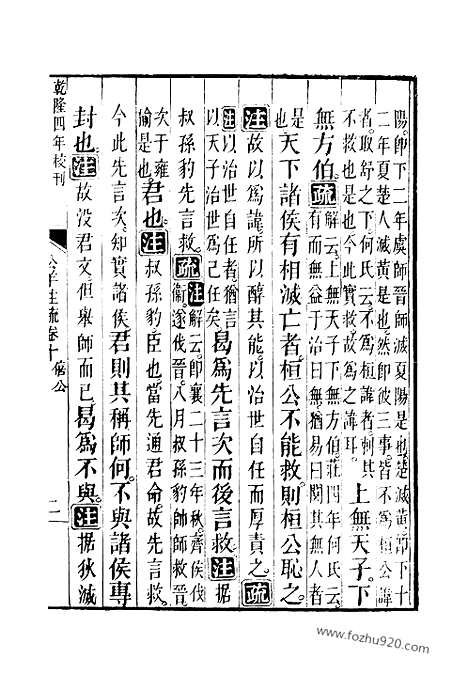 陽即下二年虞師晉師滅夏陽是也楚滅黃即下十
二年夏楚人滅黃是也然即彼三事皆不爲桓公諱
者取舒之下何氏云不爲桓諱者刺其
不救也是也今此實救故爲之諱耳
上無天子下
無方伯疏
解云上無天子下無方伯莊四年何氏云
有而無益于治曰無猶易曰闃其無人者
是
也
天下諸侯有相滅亡者桓公不能救則桓公恥之
注故以爲諱所以醇其能以治世自任而厚責之疏
注以治世自任者猶言
以天子治世爲己任矣
曷爲先言次而後言救注據
叔孫豹先言救疏
注解云即襄二十三年秋齊侯伐
衞遂伐晉八月叔孫豹帥師救晉
次于雍
榆是也
君也注叔孫豹臣也當先通君命故先言救
今此先言次知實諸侯君則其稱師何不與諸侯專
封也注故没君文但舉師而已曷爲不與注据狄滅
乾隆四年校刊
公羊注疏卷十 僖公
二
www.fozhu920.com